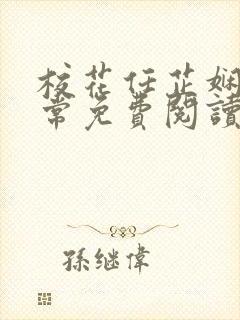 校花任芷娴
常免费閱讀
孫继偉